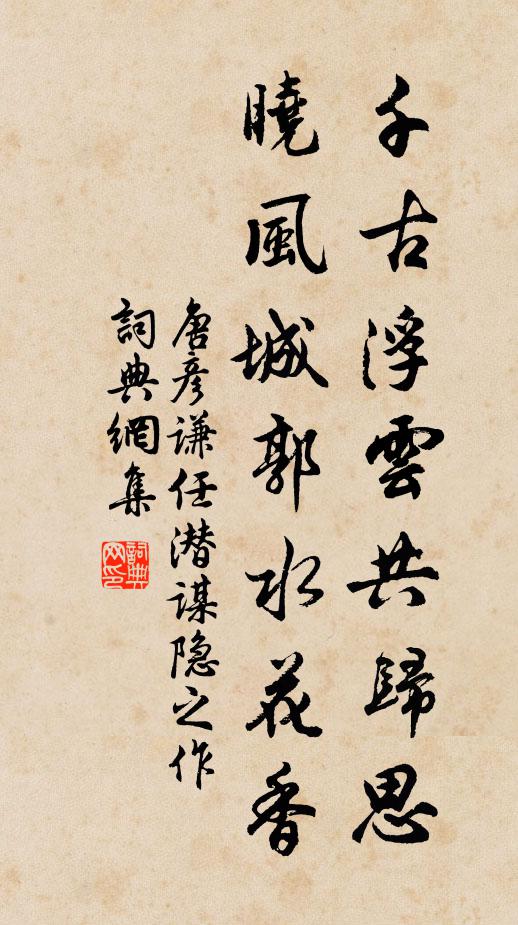 千古浮雲共歸思
曉風城郭水花香
唐彦谦任潜谋隐之作
詞典網集
詞典网印